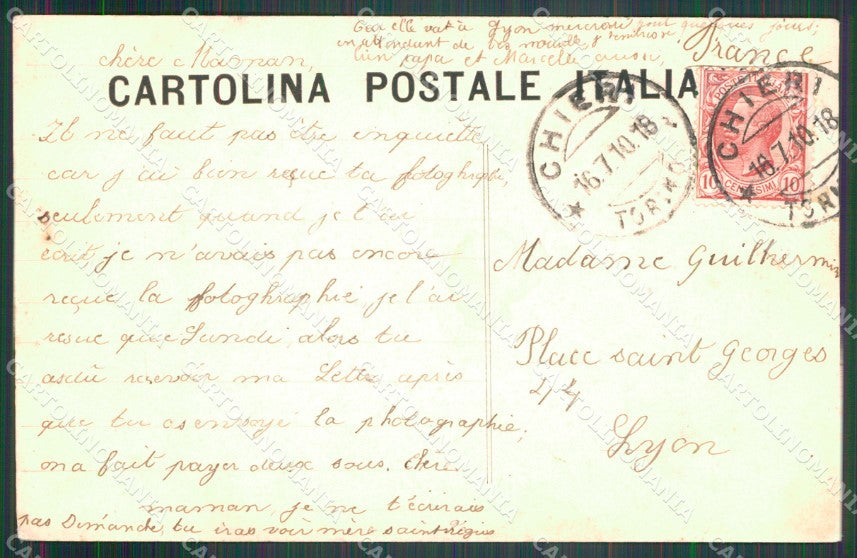 chère Maman,
CARTOLINA POSTALE ITALIANA
Il ne faut pas être inquiette
car j'ai bien reçue ta fotoghraphie,
seulement quand je t'ai
écrit je n'avais pas encore
reçue la fotoghraphie, je l'ai
resue que Lundi, alors tu
asdû recevoir ma Lettre après
que tu as envoyé la photographie,
ma fait payer deux sous. chère
maman, je ne t'écrirais
pas Dimanche, tu iras voir mère saint Régius
elle vat à Lyon mercredi pour quelques jours,
en attendant de tes nouvelle
papa et Marcelle aussi,
France
CHIERI
16.7.10.18
TORINO
CHIERI
16.7.10.18
TORINO
POSTE ITALIANE
10 CENTESIMI 10
Madame Guilhermin
Place saint Georges
24
Lyon
CARTOLINOMANIA